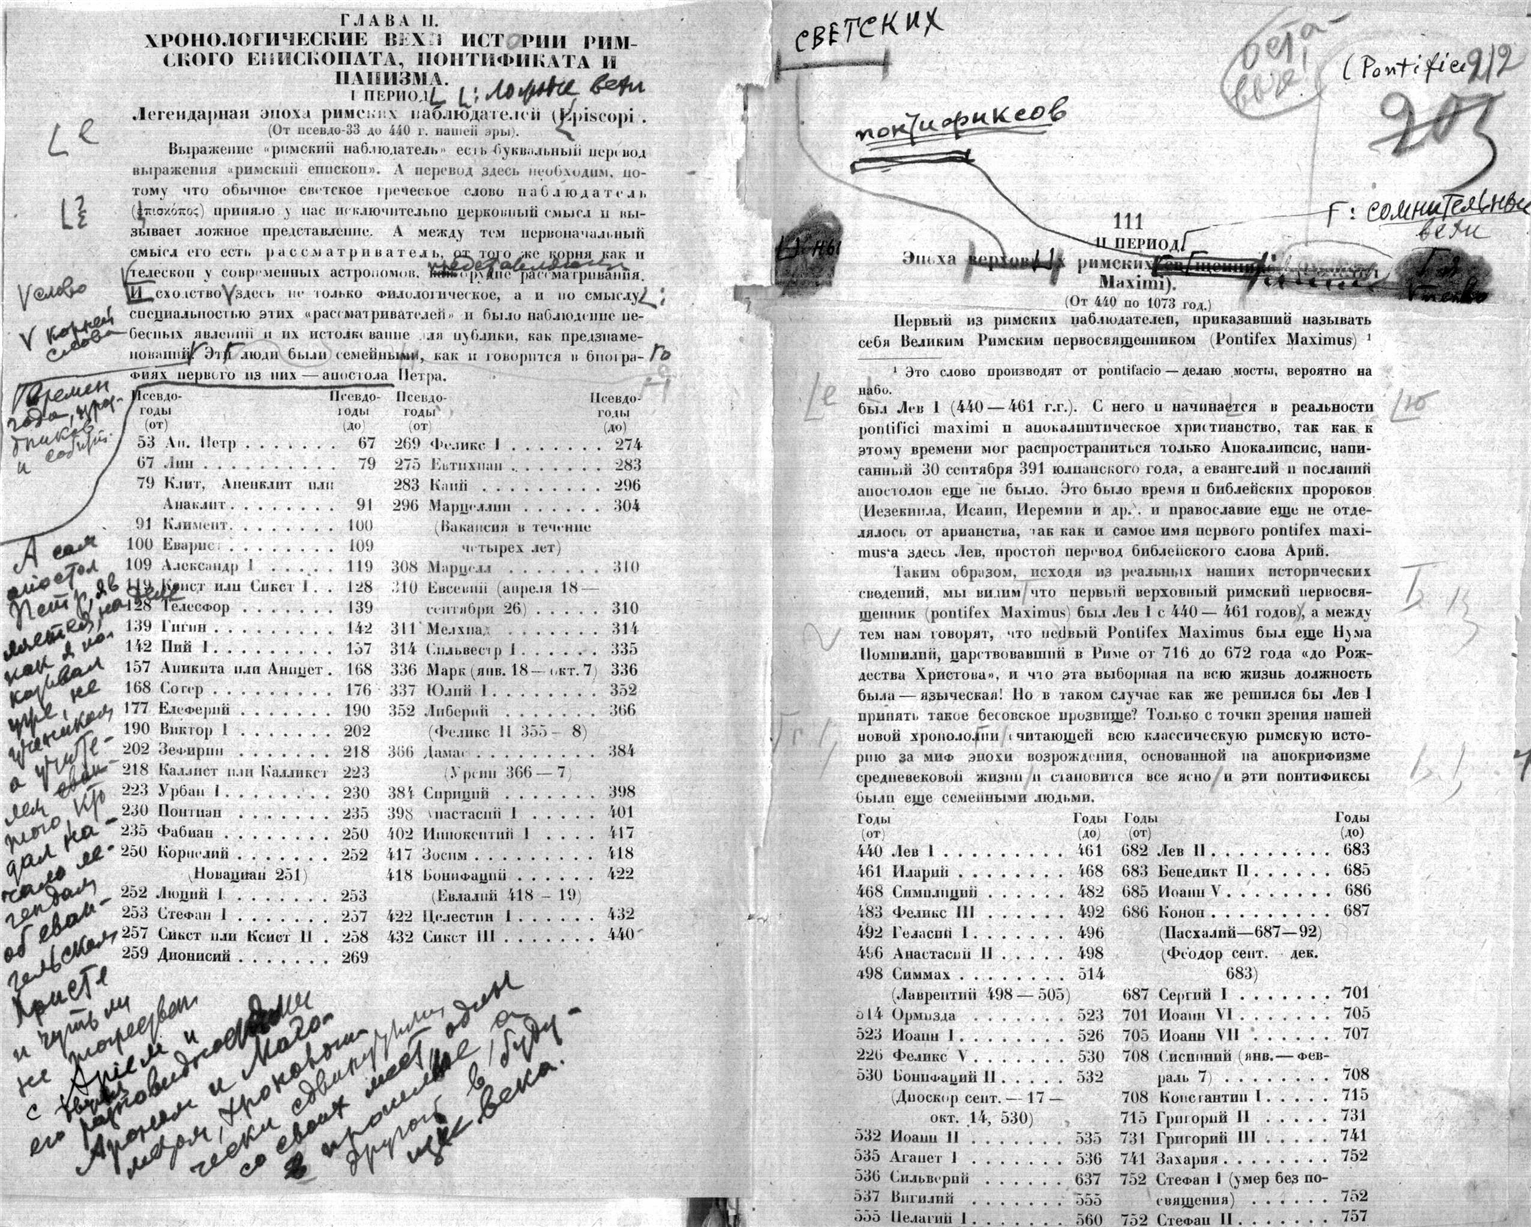 ГЛАВА II.
ХРОНОЛОГИЧЕСКИЕ ВЕХИ ИСТОРИИ РИМ-
СКОГО ЕПИСКОПАТА, ПОНТИФИКАТА И
ПАПИЗМА.
I ПЕРИОД
Легендарная эпоха римских наблюдателей (Episcopi).
(От псевдо-33 до 440 г. нашей эры).
Выражение «римский наблюдатель» есть буквальный перевод
выражения «римский епископ». А перевод здесь необходим, по-
тому что обычное светское греческое слово наблюдатель
(ἐπισκόπος) приняло у нас исключительно церковный смысл и вы-
зывает ложное представление. А между тем первоначальный
смысл его есть рассматриватель, от того же корня как и
телескоп у современных астрономов, рассматривания.
И сходство здесь не только филологическое, а и по смыслу
специальностью этих «рассматривателей» и было наблюдение не-
бесных явлений и их истолкование для публики, как предзнаме-
нований. Эти люди были семейными, как и говорится в биогра-
фиях первого из них — апостола Петра.
слово
V корней
слова
времен
года,
и
А сам
апостол
Петр, яв
ляется, на деле
как я по-
казывал
уже, не
учеником
а учите-
лем еван-
того, кто
дал на-
чало ле-
гендам
об еван-
гельском
Христе
и чуть ли
не тождествен
с Арием и
его разновидностями
Ароном и Маго-
метом, хронологи-
чески сдвинутыми
со своих мест один
в прошлые, а
другой в буду-
щие века.
Псевдо-годы (от) Псевдо-годы (до) Псевдо-годы (от) Псевдо-годы (до)
53 Ап. Петр . . . . . . . 67 269 Феликс I . . . . . . . 274
67 Лин . . . . . . . . . 79 275 Евтихиан . . . . . . . 283
79 Клит, Аненклит или 283 Каий . . . . . . . . . 296
Анаклит . . . . . . . 91 296 Марцеллин . . . . . . 304
91 Климент . . . . . . . 100 (Вакансия в течение
100 Еварис . . . . . . . . 109 четырех лет)
109 Александр I . . . . . 119 308 Марцелл . . . . . . . 310
119 Ксист или Сикст I . . 128 310 Евсевий (апреля 18—
128 Телесфор . . . . . . . 139 сентября 26) . . . . . 310
139 Гигин . . . . . . . . . 142 311 Мелхиад . . . . . . . 314
142 Пий I . . . . . . . . . 157 314 Сильвестр I . . . . . . 335
157 Аникита или Аницет . 168 336 Марк (янв. 18—окт. 7) 336
168 Сотер . . . . . . . . . 176 337 Юлий I . . . . . . . . 352
177 Елеферий . . . . . . . 190 352 Либерий . . . . . . . 366
190 Виктор I . . . . . . . 202 (Феликс II 355 — 8)
202 Зефирин . . . . . . . 218 366 Дамас . . . . . . . . . 384
218 Каллист или Калликст 223 (Урсин 366 — 7)
223 Урбан I . . . . . . . . 230 384 Сириций . . . . . . . 398
230 Понтиан . . . . . . . 235 398 Анастасий I . . . . . . 401
235 Фабиан . . . . . . . . 250 402 Иннокентий I . . . . 417
250 Корнелий . . . . . . . 252 417 Зосим . . . . . . . . . 418
(Новациан 251) 418 Бонифаций . . . . . . 422
252 Люций I . . . . . . . 253 (Евлалий 418 — 19)
253 Стефан I . . . . . . . 257 422 Целестин I . . . . . . 432
257 Сикст или Ксист II . 258 432 Сикст III . . . . . . . 440
259 Дионисий . . . . . . . 269
СВЕТСКИХ
понтификсов
(Pontifices
212
203
Г: СОМНИТЕЛЬНЫЕ
вехи
111
II ПЕРИОД
Эпоха верховных римских
Maximi).
(От 440 по 1073 год.)
Первый из римских наблюдателей, приказавший называть
себя Великим Римским первосвященником (Pontifex Maximus) ¹
¹ Это слово производят от pontifacio — делаю мосты, вероятно на
небо.
был Лев I (440—461 г.г.). С него и начинается в реальности
pontifici maximi и апокалиптическое христианство, так как к
этому времени мог распространиться только Апокалипсис, напи-
санный 30 сентября 391 юлианского года, а евангелий и посланий
апостолов еще не было. Это было время и библейских пророков
(Иезекиила, Исаии, Иеремии и др.). и православие еще не отде-
лялось от арианства, так как и самое имя первого pontifex maxi-
mus'а здесь Лев, простой перевод библейского слова Арий.
Таким образом, исходя из реальных наших исторических
сведений, мы видим что первый верховный римский первосвя-
щенник (pontifex Maximus) был Лев I с 440—461 годов, а между
тем нам говорят, что первый Pontifex Maximus был еще Нума
Помпилий, царствовавший в Риме от 716 до 672 года «до Рож-
дества Христова», и что эта выборная на всю жизнь должность
была — языческая! Но в таком случае как же решился бы Лев I
принять такое бесовское прозвище? Только с точки зрения нашей
новой хронологии считающей всю классическую римскую исто-
рию за миф эпохи возрождения, основанной на апокрифизме
средневековой жизни и становится все ясно и эти понтификсы
были еще семейными людьми.
Годы (от) Годы (до) Годы (от) Годы (до)
440 Лев I . . . . . . . . . 461 682 Лев II . . . . . . . . . 683
461 Иларий . . . . . . . . 468 683 Бенедикт II . . . . . . 685
468 Симплиций . . . . . . 482 685 Иоанн V . . . . . . . . 686
483 Феликс III . . . . . . 492 686 Конон . . . . . . . . . 687
492 Геласий I . . . . . . . 496 (Пасхалий—687—92)
496 Анастасий II . . . . . 498 (Феодор сент. дек.
498 Симмах . . . . . . . . 514 683)
(Лаврентий 498 — 505) 687 Сергий I . . . . . . . 701
514 Ормизда . . . . . . . 523 701 Иоанн VI . . . . . . . 705
523 Иоанн I . . . . . . . . 526 705 Иоанн VII . . . . . . . 707
226 Феликс V . . . . . . . 530 708 Сисиний (янв.—фев-
530 Бонифаций II . . . . . 532 раль 7) . . . . . . . . 708
(Диоскор сент. — 17 — 708 Константин I . . . . . 715
окт. 14, 530) 715 Григорий II . . . . . . 731
532 Иоанн II . . . . . . . 535 731 Григорий III . . . . . 741
535 Агапет I . . . . . . . 536 741 Захария . . . . . . . . 752
536 Сильверий . . . . . . 637 752 Стефан I (умер без по-
537 Вигилий . . . . . . . 555 священия) . . . . . . 752
555 Пелагий I . . . . . . . 560 752 Стефан II . . . . . . . 757